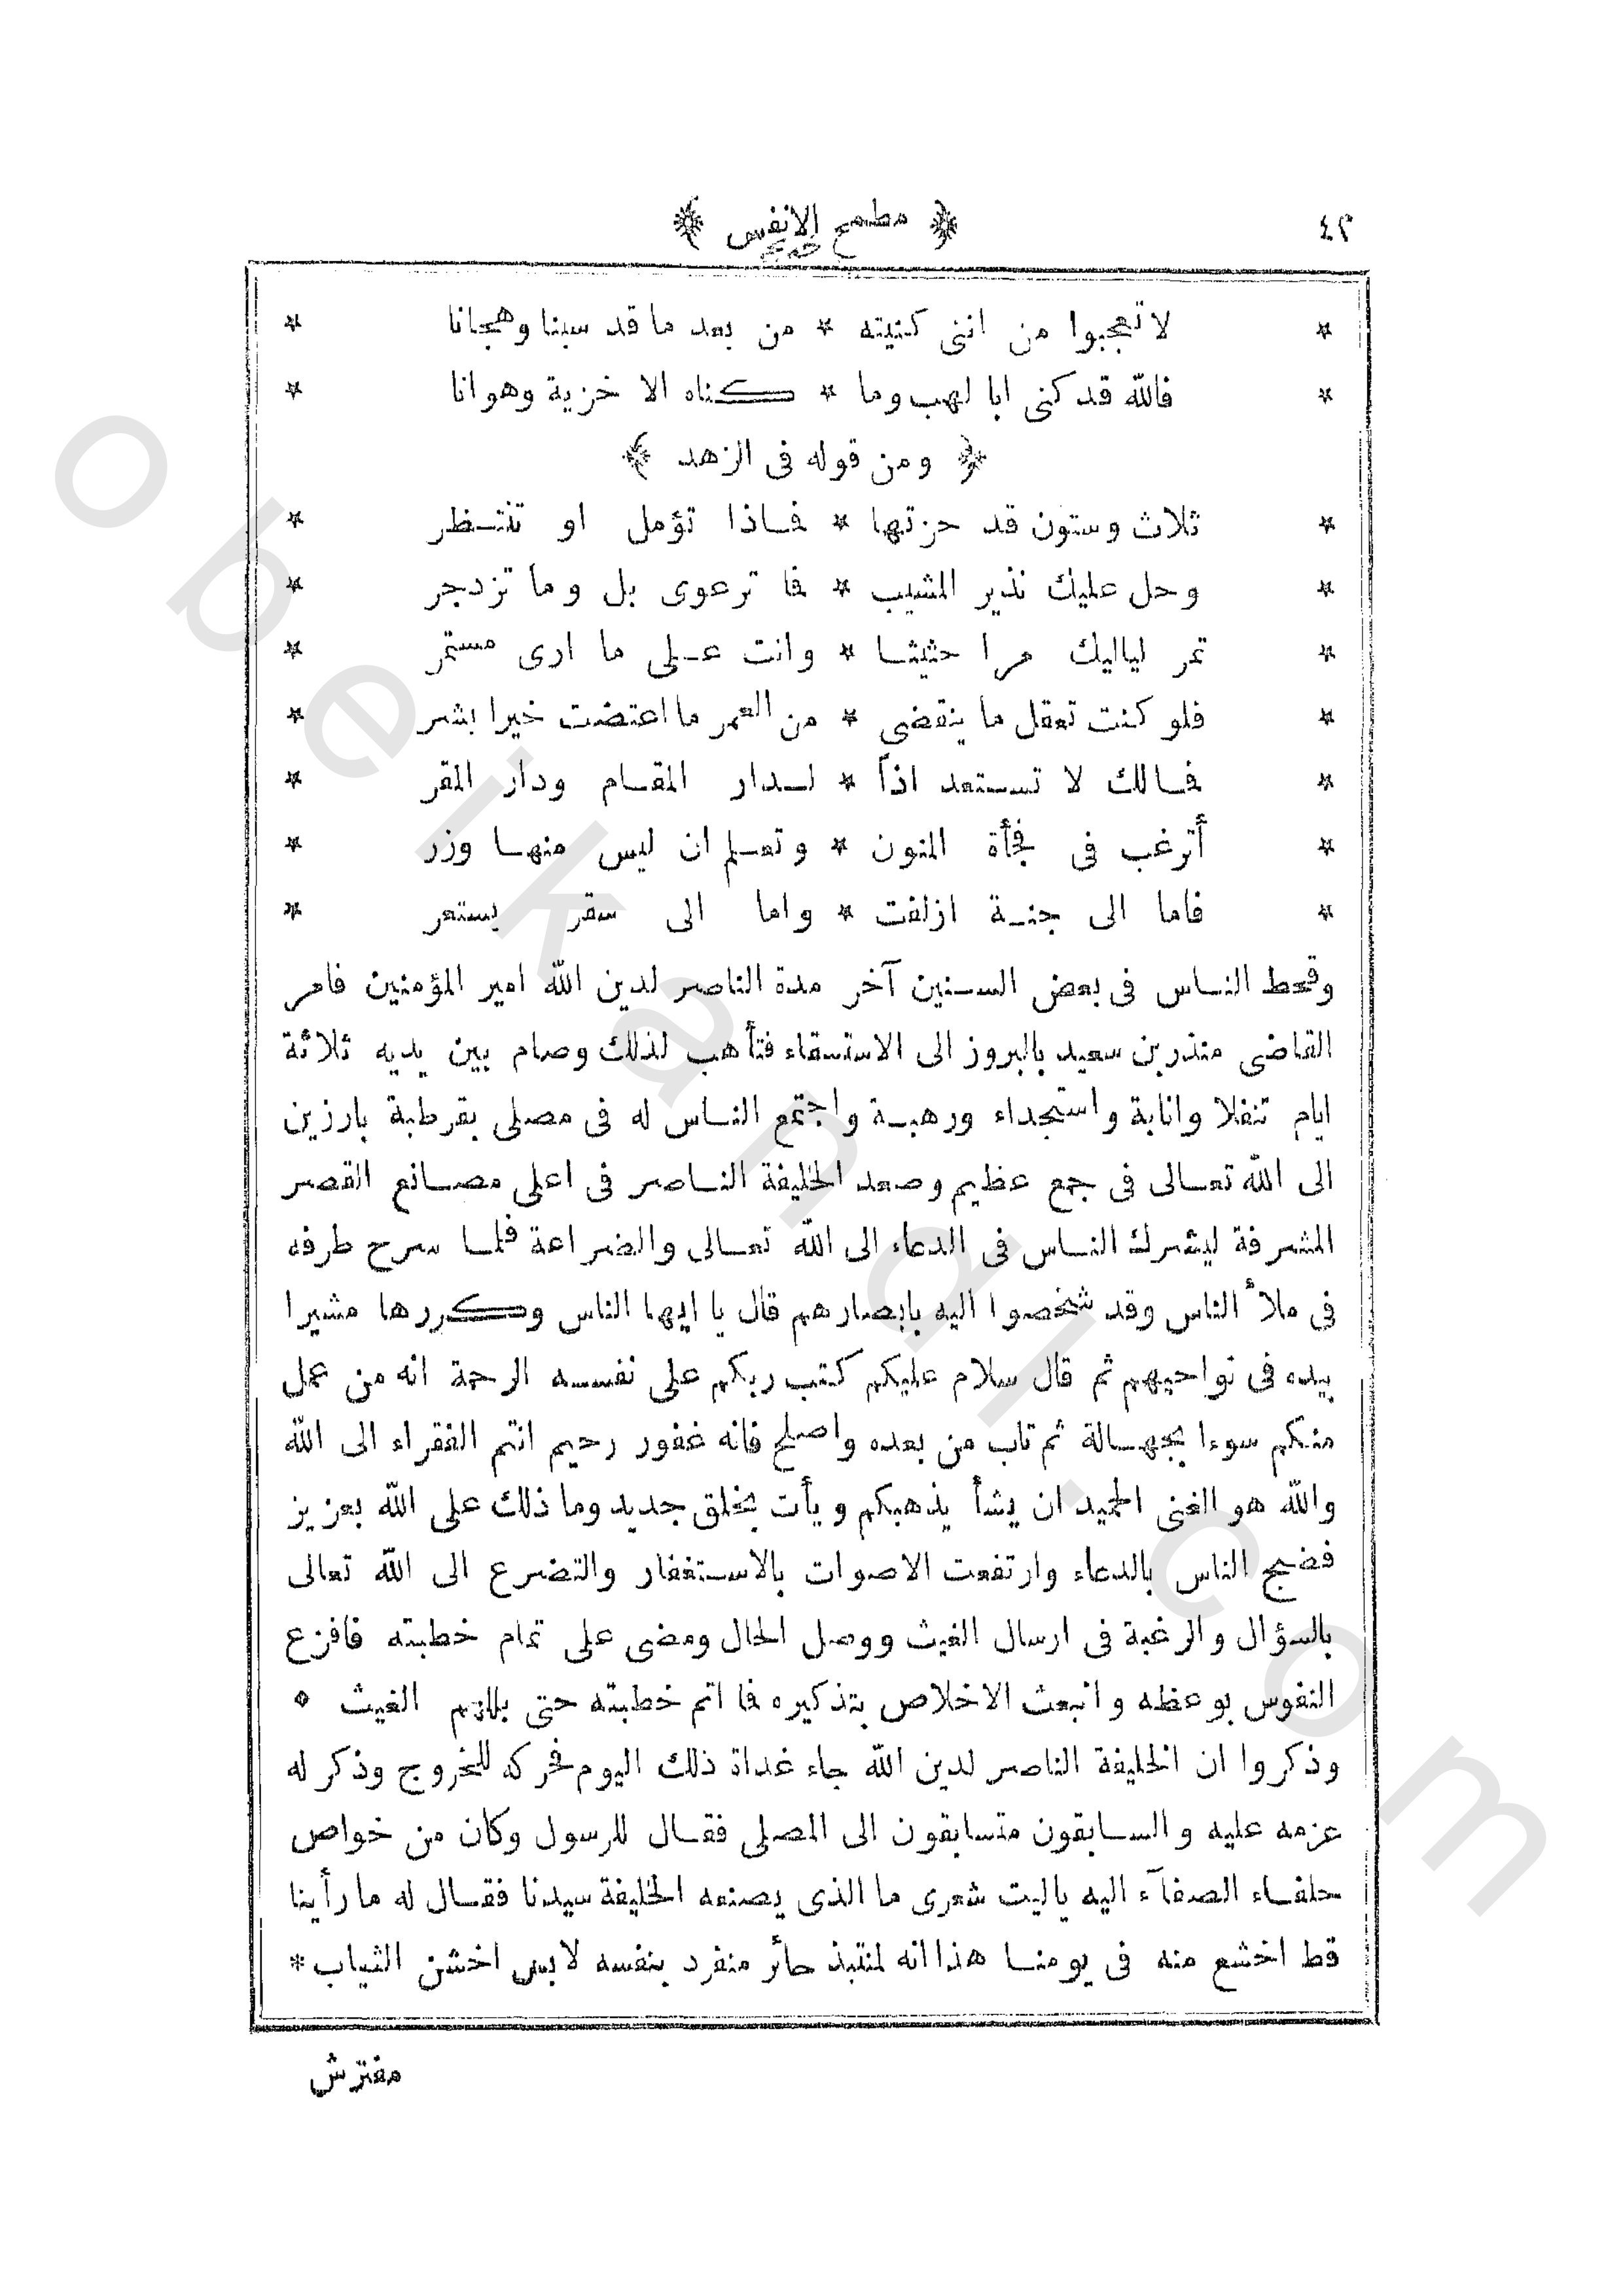 ٤٢ ﴿ مطمح الانفس ﴾
* لا تعجبوا من اننى كنيته * من بعد ما قد سبنا وهجانا *
* فالله قد كنى ابا لهب وما * كناه الا خزية وهوانا *
﴿ ومن قوله فى الزهد ﴾
* ثلاث وستون قد حزتها * فماذا تؤمل او تنتظر *
* وحل عليك نذير المشيب * فما ترعوى بل وما تزدجر *
* تمر لياليك مرا حثيثا * وانت على ما ارى مستمر *
* فلو كنت تعقل ما ينقضى * من العمر ما اعتضت خيرا بشر *
* فمالك لا تستعد اذاً * لدار المقام ودار المقر *
* أترغب فى فجأة المنون * وتعلم ان ليس منها وزر *
* فاما الى جنة ازلفت * واما الى سقر يستعر *
وقحط الناس فى بعض السنين آخر مدة الناصر لدين الله امير المؤمنين فامر
القاضى منذر بن سعيد بالبروز الى الاستسقاء فتأهب لذلك وصام بين يديه ثلاثة
ايام تنفلا وانابة واستجداء ورهبة واجتمع الناس له فى مصلى بقرطبة بارزين
الى الله تعالى فى جمع عظيم وصعد الخليفة الناصر فى اعلى مصانع القصر
المشرفة ليشرك الناس فى الدعاء الى الله تعالى والضراعة فلما سرح طرفه
فى ملأ الناس وقد شخصوا اليه بابصارهم قال يا ايها الناس وكررها مشيرا
بيده فى نواحيهم ثم قال سلام عليكم كتب ربكم على نفسه الرحمة انه من عمل
منكم سوءا بجهالة ثم تاب من بعده واصلح فانه غفور رحيم انتم الفقراء الى الله
والله هو الغنى الحميد ان يشأ يذهبكم ويأت بخلق جديد وما ذلك على الله بعزيز
فضج الناس بالدعاء وارتفعت الاصوات بالاستغفار والتضرع الى الله تعالى
بالسؤال والرغبة فى ارسال الغيث ووصل الحال ومضى على تمام خطبته فافزع
النفوس بوعظه وانبعث الاخلاص بتذكيره فما اتم خطبته حتى بللهم الغيث ٥
وذكروا ان الخليفة الناصر لدين الله جاء غداة ذلك اليوم فحركه للخروج وذكر له
عزمه عليه والسابقون متسابقون الى المصلى فقال للرسول وكان من خواص
حلفاء الصفآء اليه ياليت شعرى ما الذى يصنعه الخليفة سيدنا فقال له ما رأينا
قط اخشع منه فى يومنا هذا انه لمنتبذ حائر منفرد بنفسه لابس اخشن الثياب *
مفترش
obeikandl.com